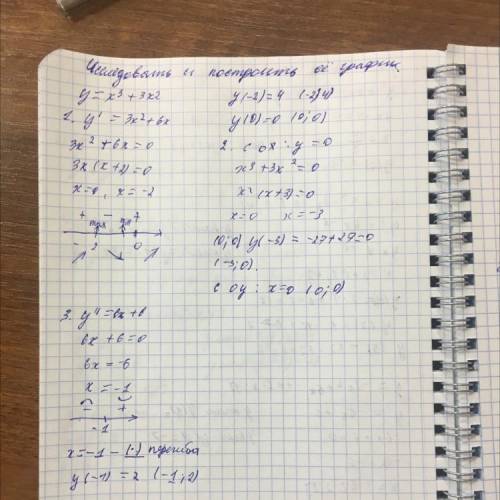 Исследовать и построить её график
y = x³ + 3x2
1. y' = 3x² + 6x
3x² + 6x = 0
3x(x+2) = 0
x=0, x = -2
+ max - min +
-2 0
y(-2) = 4 (-2;4)
y(0) = 0 (0;0)
2. с ox: y = 0
x³ + 3x² = 0
x² (x+3) = 0
x=0 x = -3
(0;0) y(-3) = -27+27=0
(-3;0).
с oy: x=0 (0;0)
3. y'' = 6x + 6
6x + 6 = 0
6x = -6
x = -1
- +
-1
x = -1 - (·) перегиба
y(-1) = 2 (-1;2)